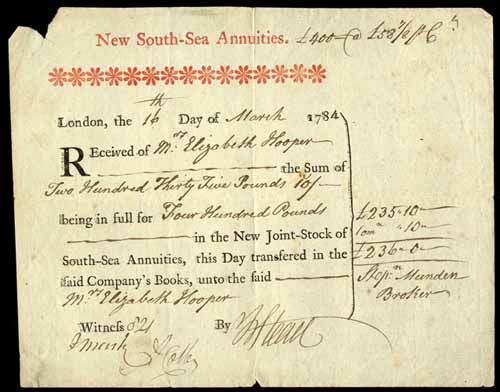 New South-Sea Annuities. £400 @ £58 7/8 p Ct
London, the 16th Day of March 1784
Received of Mrs Elizabeth Hooper
the Sum of
Two Hundred Thirty Five Pounds 10/-
being in full for Four Hundred Pounds
in the New Joint-Stock of
South-Sea Annuities, this Day transfered in the
said Company's Books, unto the said
Mrs Elizabeth Hooper
Witness
By
£235"10-
Comn "10-
£236"0-
Stepn Munden
Broker